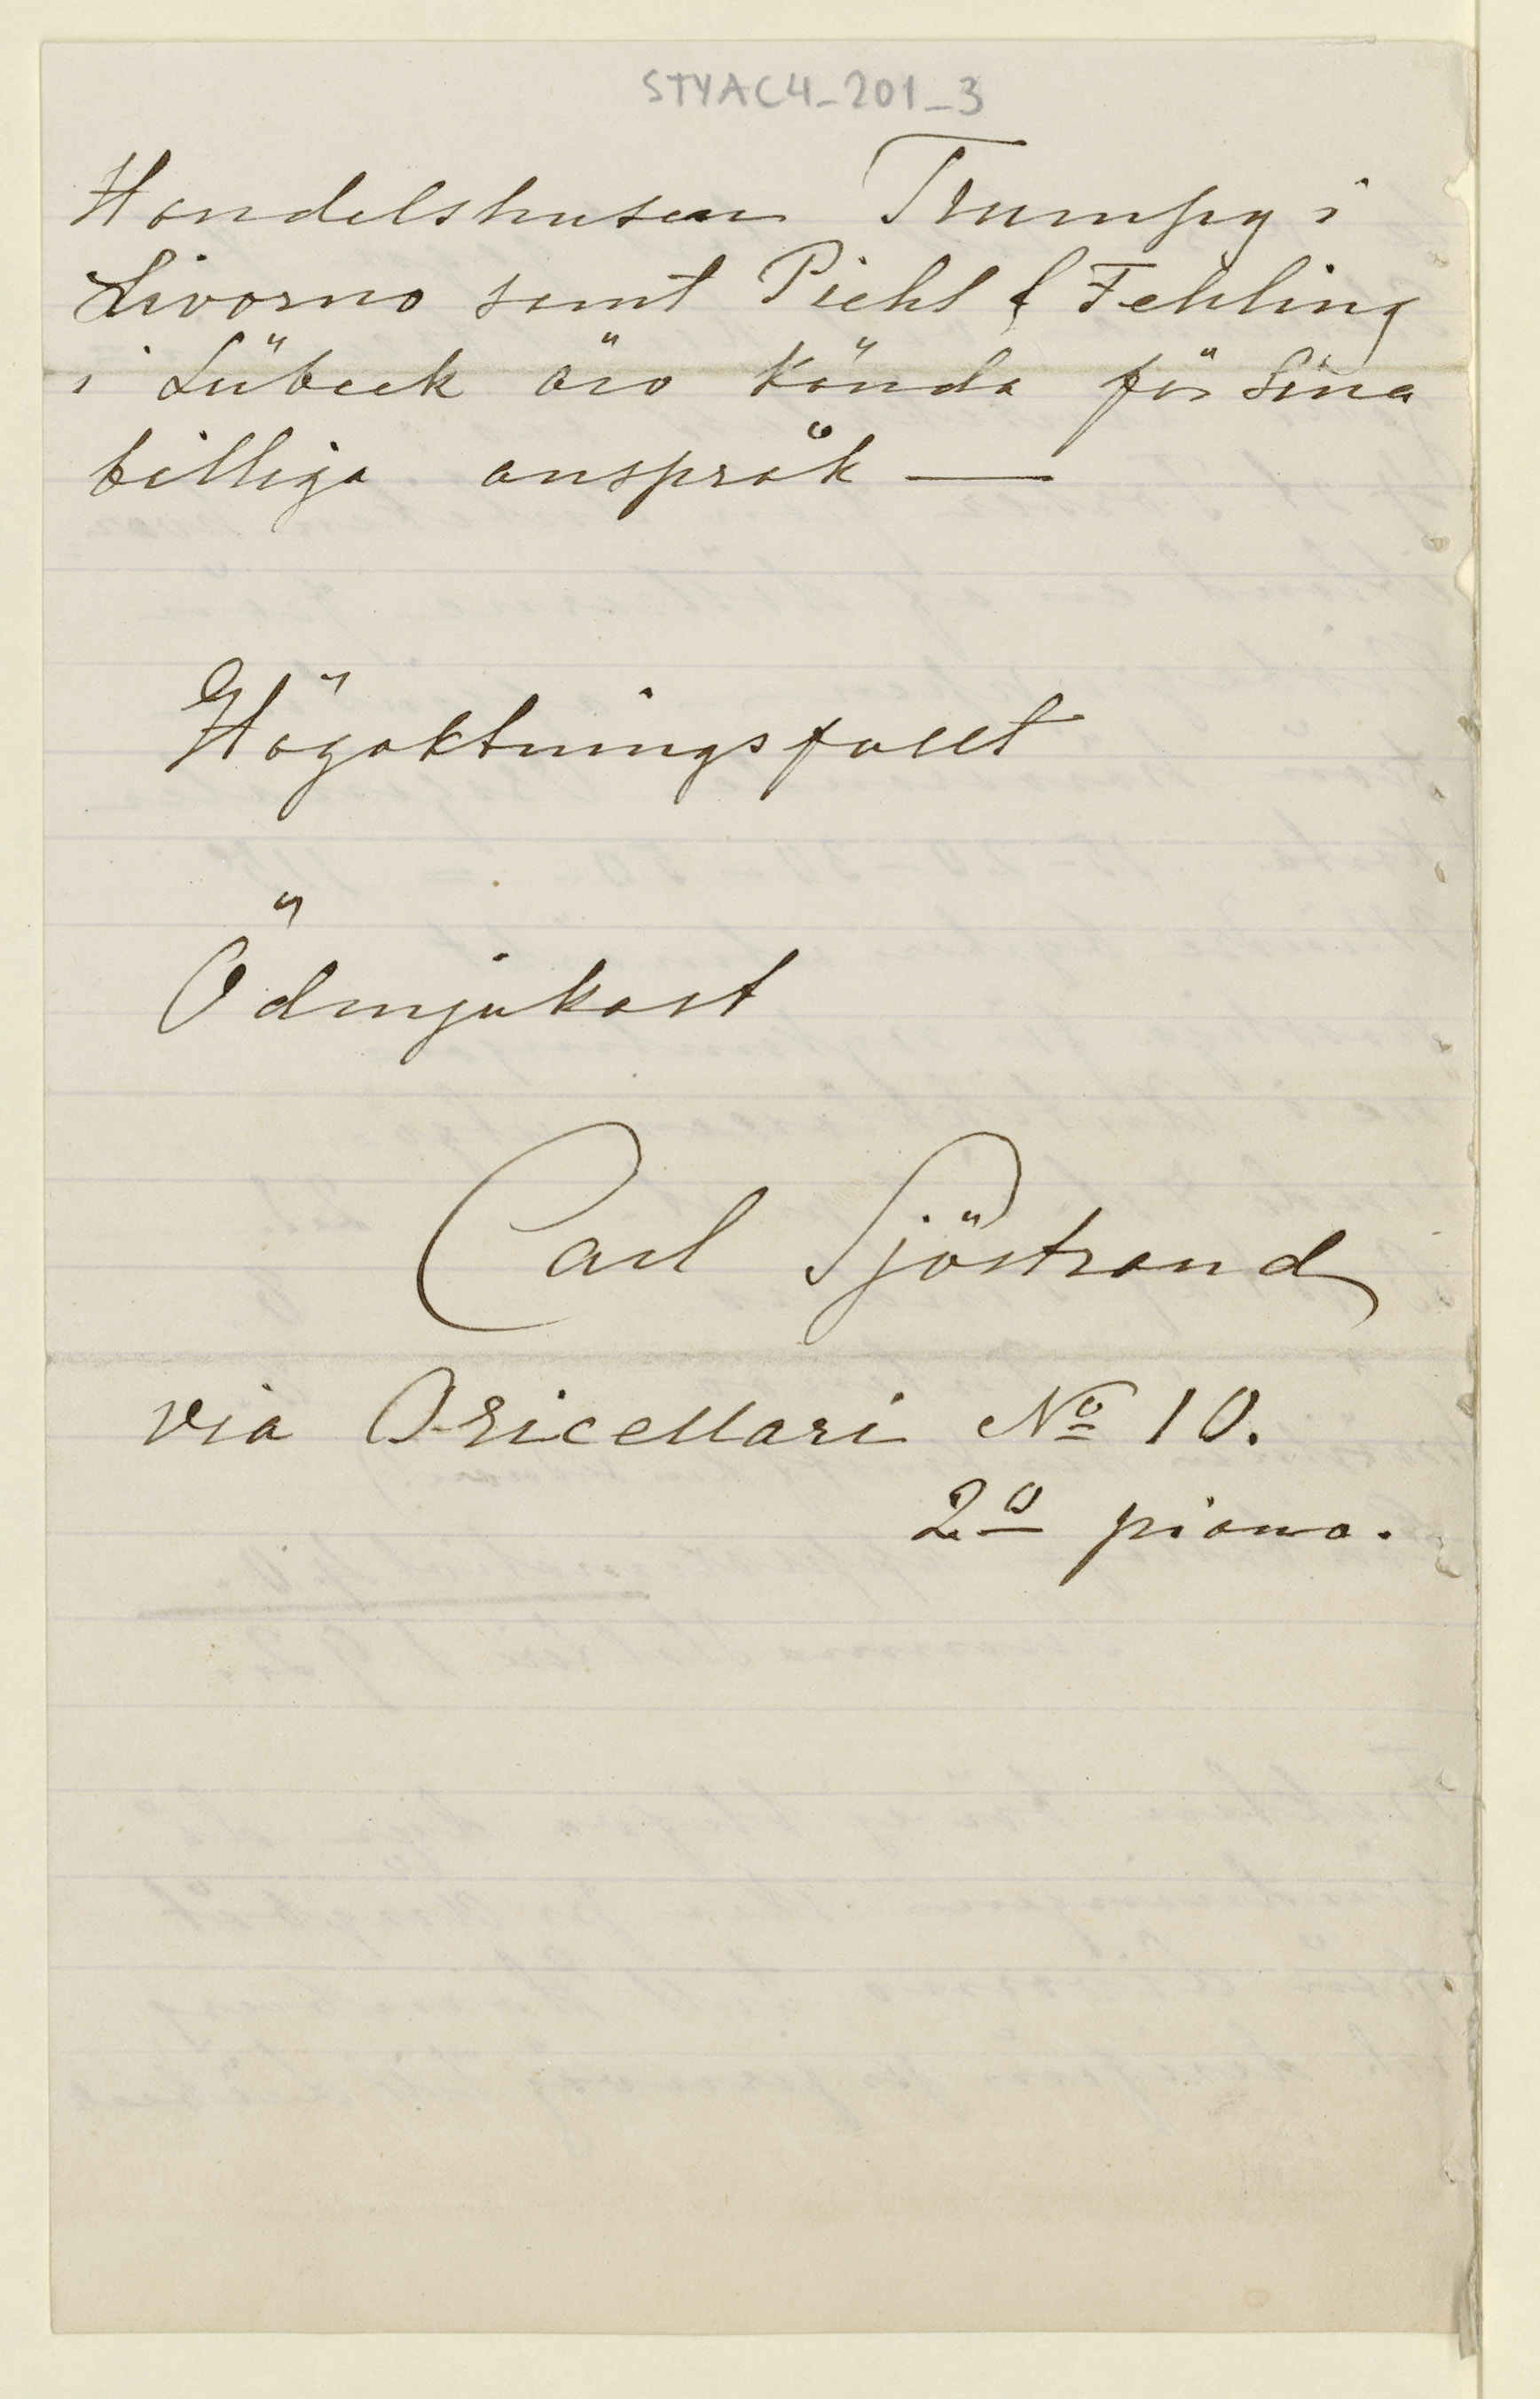 STYAC4_201_3
Handelshusen Trumpy i
Livorno samt Piehl & Fehling
i Lübeck äro Kända för Sina
billiga anspråk —
Högaktningsfullt
Ödmjukast
Carl Sjöstrand
via Oricellari Nº 10.
2º piano.